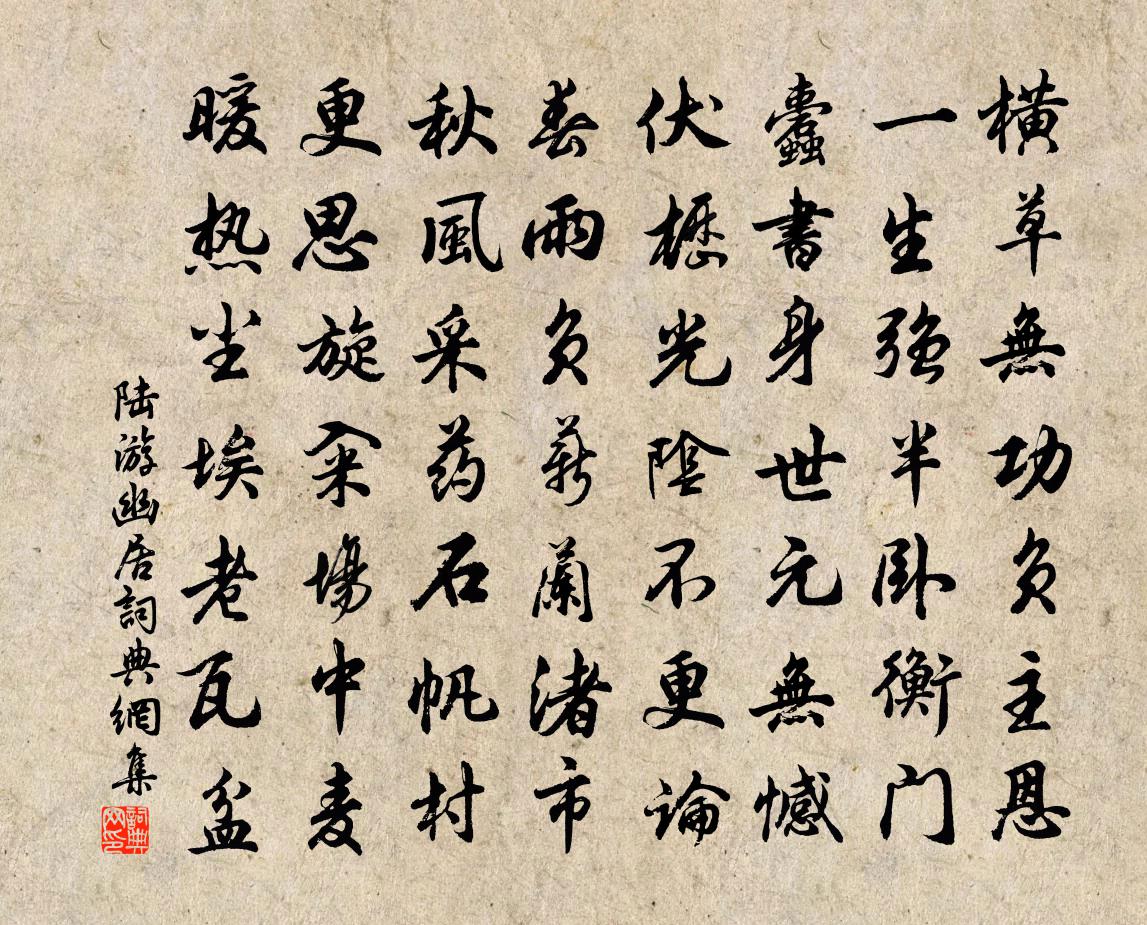 橫草無功負主恩
一生強半卧衡門
蠹書身世元無憾
伏櫪光陰不更論
春雨負薪蘭渚市
秋風采药石帆村
更思旋籴場中麦
暖热尘埃老瓦盆
陆游幽居詞典網集
詞典网印